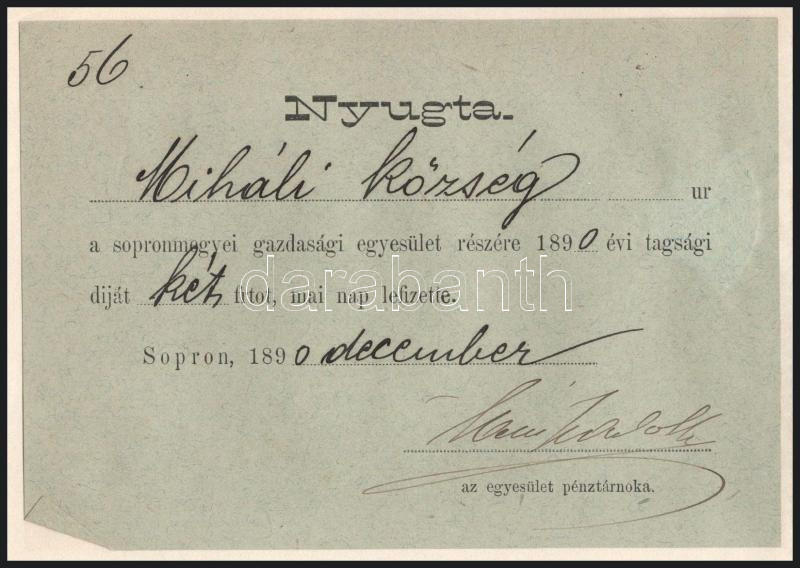 56
Nyugta.
Miháli község ur
a sopronmegyei gazdasági egyesület részére 1890 évi tagsági
diját két frtot, mai nap lefizette.
darabanth
Sopron, 1890 december
az egyesület pénztárnoka.